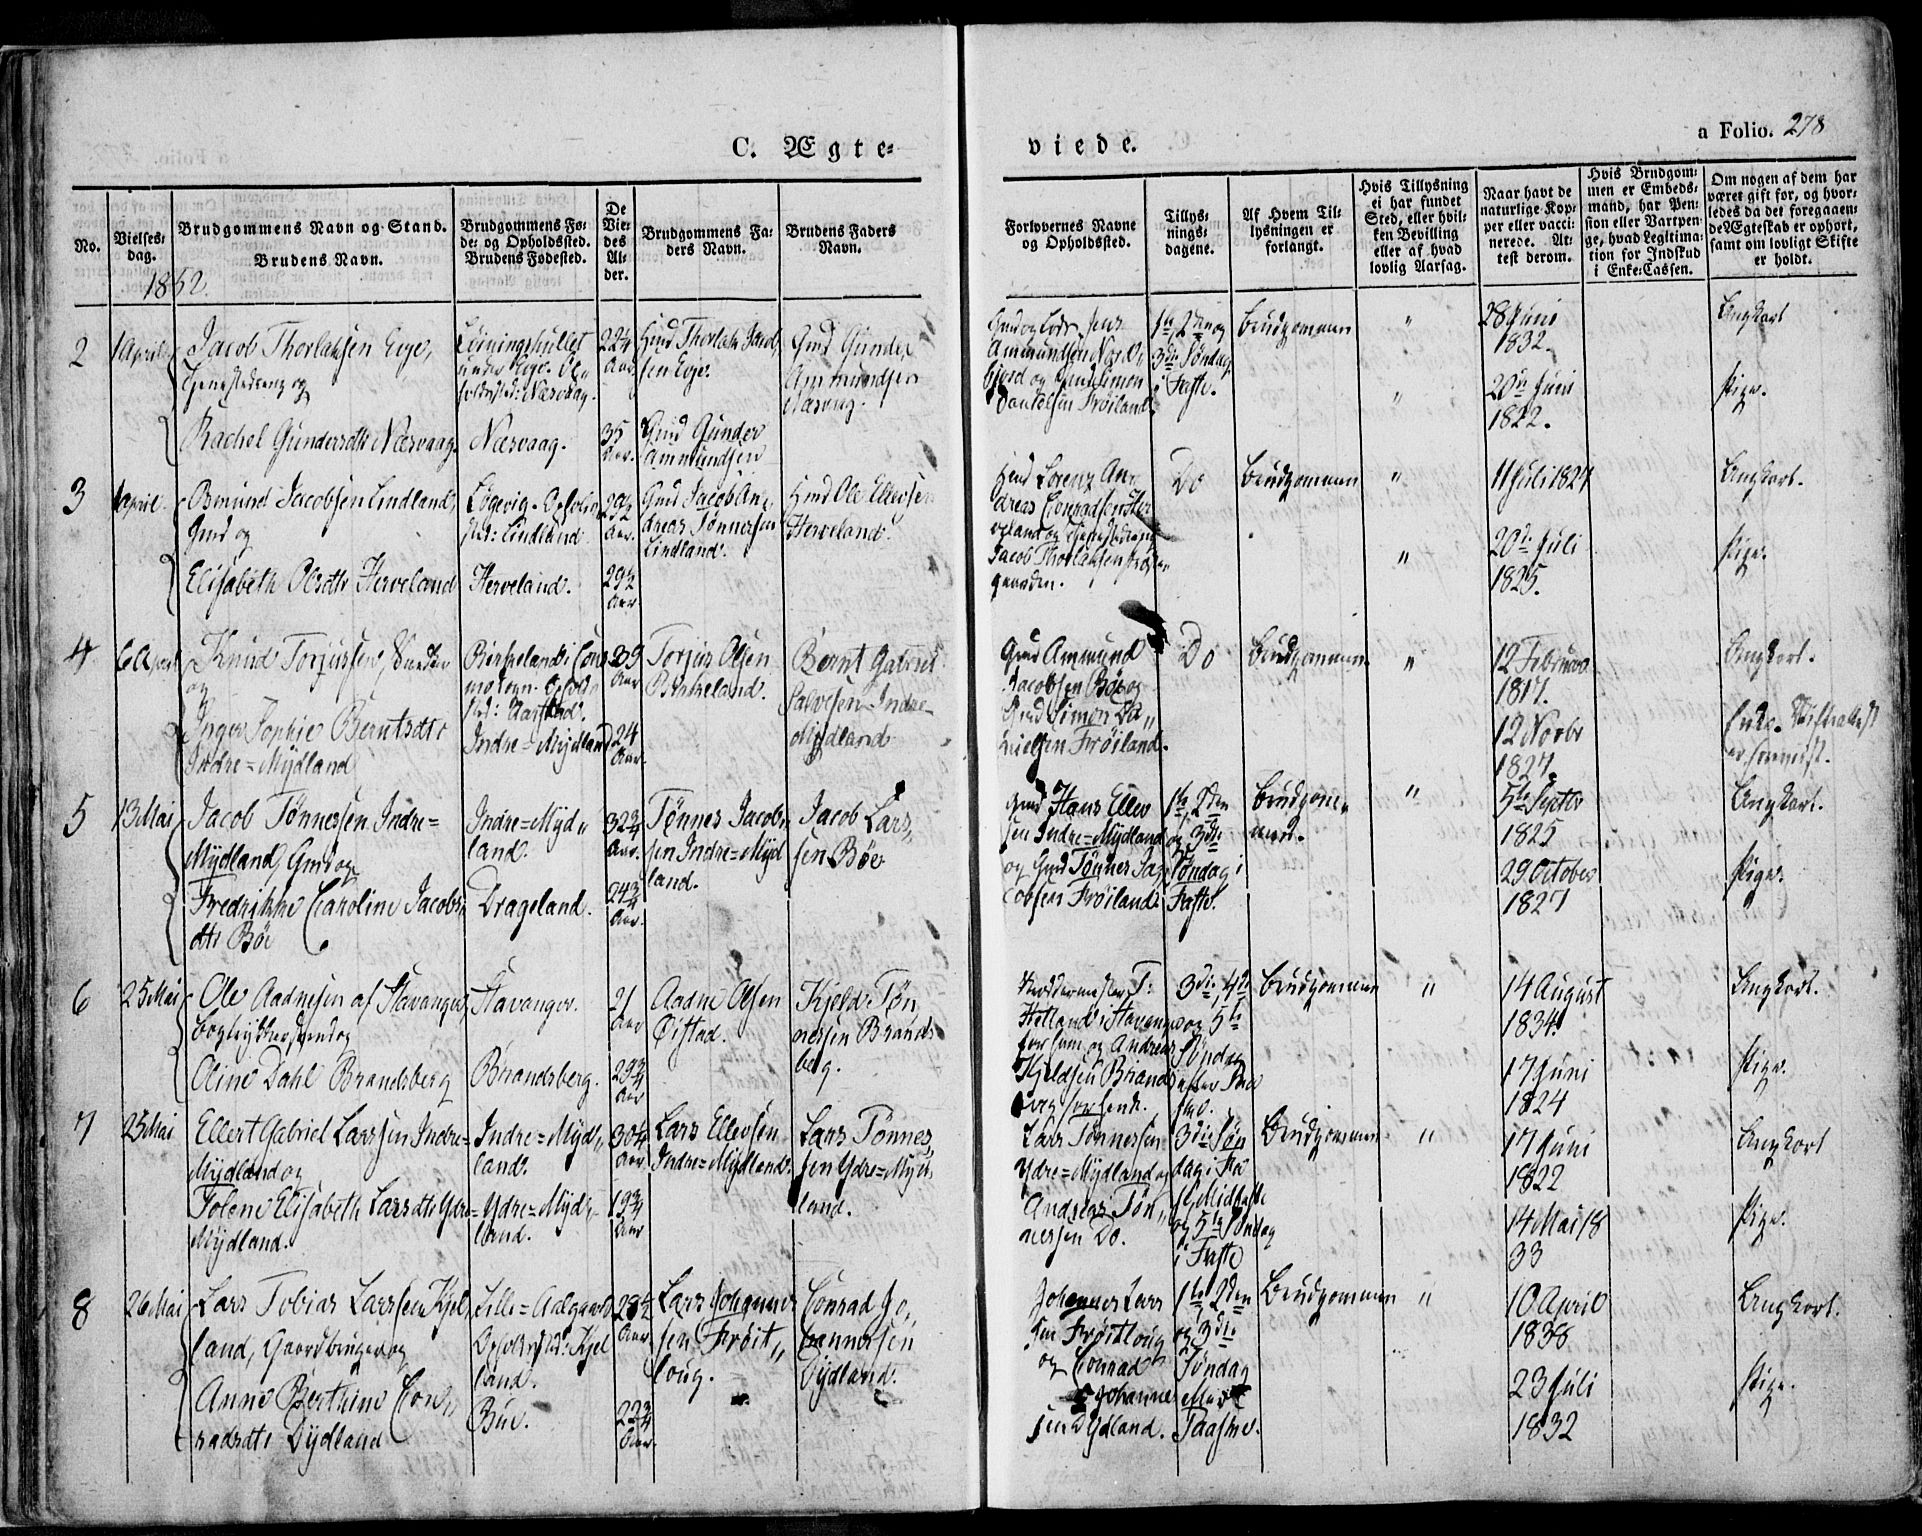 C. Ægte=
viede.
a Folio. 278
No.
Vielses=
dag.
Brudgommens Navn og Stand.
Brudens Navn.
Brudgommens Fø=
de= og Opholdssted.
Brudens Fødested.
De
Vie=
des
Al=
der.
Brudgommens Fa=
ders Navn.
Brudens Faders
Navn.
Forlovernes Navne
og Opholdssted.
Tillys=
nings=
dagene.
Af Hvem Til=
lysningen er
forlangt.
Hvis Tillysning
ei har fundet
Sted, eller hvil=
ken Bevilling
eller af hvad
lovlig Aarsag.
Naar havt de
naturlige Kop=
per eller vacci=
nerede. At=
test derom.
Hvis Brudgom=
men er Embeds=
mand, har Pen=
sion eller Vartpen=
ge, hvad Legitima=
tion for Indskud
i Enke=Cassen.
Om nogen af dem har
været gift før, og hvor=
ledes da det foregaaen=
de Ægteskab er ophørt,
samt om lovligt Skifte
er holdt.
1852.
2
1 April
Jacob Thorlaksen Eeje,
og
Rachel Gundersdtr Næsvaag.
under Eeje. Op=
holdssted: Næsvaag.
Næsvaag.
22 3/4
Aar.
35
Aar.
Gmd Thorlak Jacob
sen Eeje.
Gmd Gunder
Ammundsen
Gmd Gunder
Ammundsen
Næsvaag.
Gmd og Jens
Ammundsen
og Gmd Simon
Danielsen Frøiland.
1te, 2den og
3die Søndag
i Faste.
Brudgommen
"
"
28 Juni
1832.
20de Juni
1822.
Ungkarl
Pige.
3
1 April.
Osmund Jacobsen Lindland,
Gmd og
Elisabeth Olsdtr Herveland
Løgevig. Ophold
sted: Lindland.
Herveland.
29 1/2
Aar.
29 1/2
Aar.
Gmd Jacob An=
dreas Tønnessen
Lindland.
Gmd Ole Ellevsen
Herveland.
Gmd Lorenz An=
dreas Conradsen Her
veland og
Jacob Thorlaksen
gaarden.
Do
Brudgommen
"
"
11 Juli 1824
20de Juli
1825.
Ungkarl.
Pige.
4
6 April
Knud Torjussen,
og
Inger Sophie Berntsdtr
Indre=Mydland
Birkeland i
Sogn. Ophold
sted: Aarstad.
Indre=Mydland
39
Aar
24
Aar.
Torjus Olsen
Birkeland.
Bernt Gabriel
Salvesen Indre=
Mydland
Gmd Ammund
Jacobsen Bøe og
Gmd Simon Da=
nielsen Frøiland.
Do
Brudgommen
"
12 Februar
1817.
12 Novbr
1827.
Ungkarl.
Enke.
5
13 Mai
Jacob Tønnessen Indre=
Mydland, Gmd og
Fredrikke Caroline Jacobs
dtr Bøe
Indre=Myd=
land.
Drageland.
32 3/4
Aar.
24 3/4
Aar.
Tønnes Jacob
sen Indre=Myd
land.
Jacob Lars=
sen Bøe
Gmd Hans Ellev
sen Indre=Mydland
og Gmd Tønnes Ja
cobsen Frøiland.
1te, 2den
og 3die
Søndag i
Faste.
Brudgom=
men.
"
5te Septbr
1825
29 October
1827
Ungkarl.
Pige.
6
25 Mai
Ole Aadnesen af Stavanger,
Bogtrykkersvend og
Oline Dahl Brandsberg
Stavanger.
Brandsberg.
21
Aar
29 3/4
Aar
Aadne Olsen
Øistad.
Kjeld Tøn
nessen Brands
berg.
Helland, Stavanger
og Andreas
Kjeldsen Brands
berg
3die, 4de
og 5te
Søndag
efter Paa
ske.
Brudgommen
"
14 August
1834.
17 Juni
1824
Ungkarl.
Pige.
7
25 Mai
Ellert Gabriel Larssen Indre=
Mydland og
Tolene Elisabeth Larsdtr Ydre=
Mydland.
Indre=Myd=
land.
Ydre=Myd=
land.
30 1/4
Aar.
19 3/4
Aar
Lars Ellevsen
Indre=Mydland.
Lars Tønnes=
sen Ydre=Myd=
land.
Lars Tønnessen
Ydre=Mydland og
Andreas Tøn=
nessen Do.
3die Søn
dag i Fa
ste, Midfaste
og 5te Søndag
i Faste
Brudgommen
"
17 Juni
1822
14 Mai 18
33
Ungkarl
Pige.
8
26 Mai
Lars Tobias Larssen Kjel
land, Gaardbruger og
Anne Berthine Con=
radsdtr Dydland
Lille=Aalgaard
Opholdssted: Kjel
land.
Bue.
28 1/2
Aar.
22 3/4
Aar.
Lars Johannes
sen Frøit=
loug.
Conrad Jo=
hannessen
Dydland.
Johannes Lars
sen Frøitloug
og Conrad
Johannes
sen Dydland.
1te, 2den
og 3die
Søndag
efter
Paaske.
Brudgommen
"
10 April
1838
23 Juli
1832
Ungkarl.
Pige.